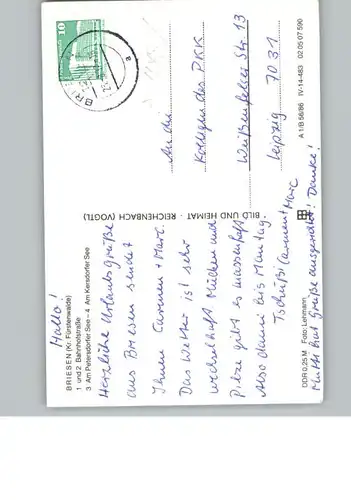 Hallo!
BRIESEN (Kr. Fürstenwalde)
1 und 2 Bahnhofstraße
3 Am Petersdorfer See – 4 Am Kersdorfer See
Herzliche Urlaubsgrüße
aus Briesen sendet
Ihnen Carmen + Marc.
Das Wetter ist sehr
wechselhaft Mücken und
Pilze gibt es massenhaft
Also dann bis Montag.
Tschüß Carmen + Marc
Mutti hat Grüße ausgerichtet! Danke!
DDR 0,25 M Foto: Lehmann
BILD UND HEIMAT · REICHENBACH (VOGTL)
A 1/B 56/86 IV-14-483 02 05 07 590
10
BRIE
a
An die
Kollegen der PKK
Weißenfelser Str. 13
Leipzig
7031